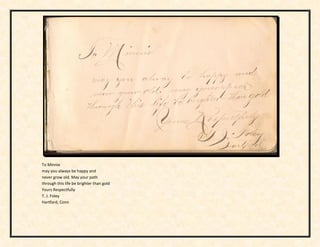 To Minnie
may you alway be happy and
never grow old. may your path
through this life be brighter than gold
Yours Respectfully
T. J. Foley
Hartford
To Minnie
may you always be happy and
never grow old. May your path
through this life be brighter than gold
Yours Respectfully
T. J. Foley
Hartford, Conn